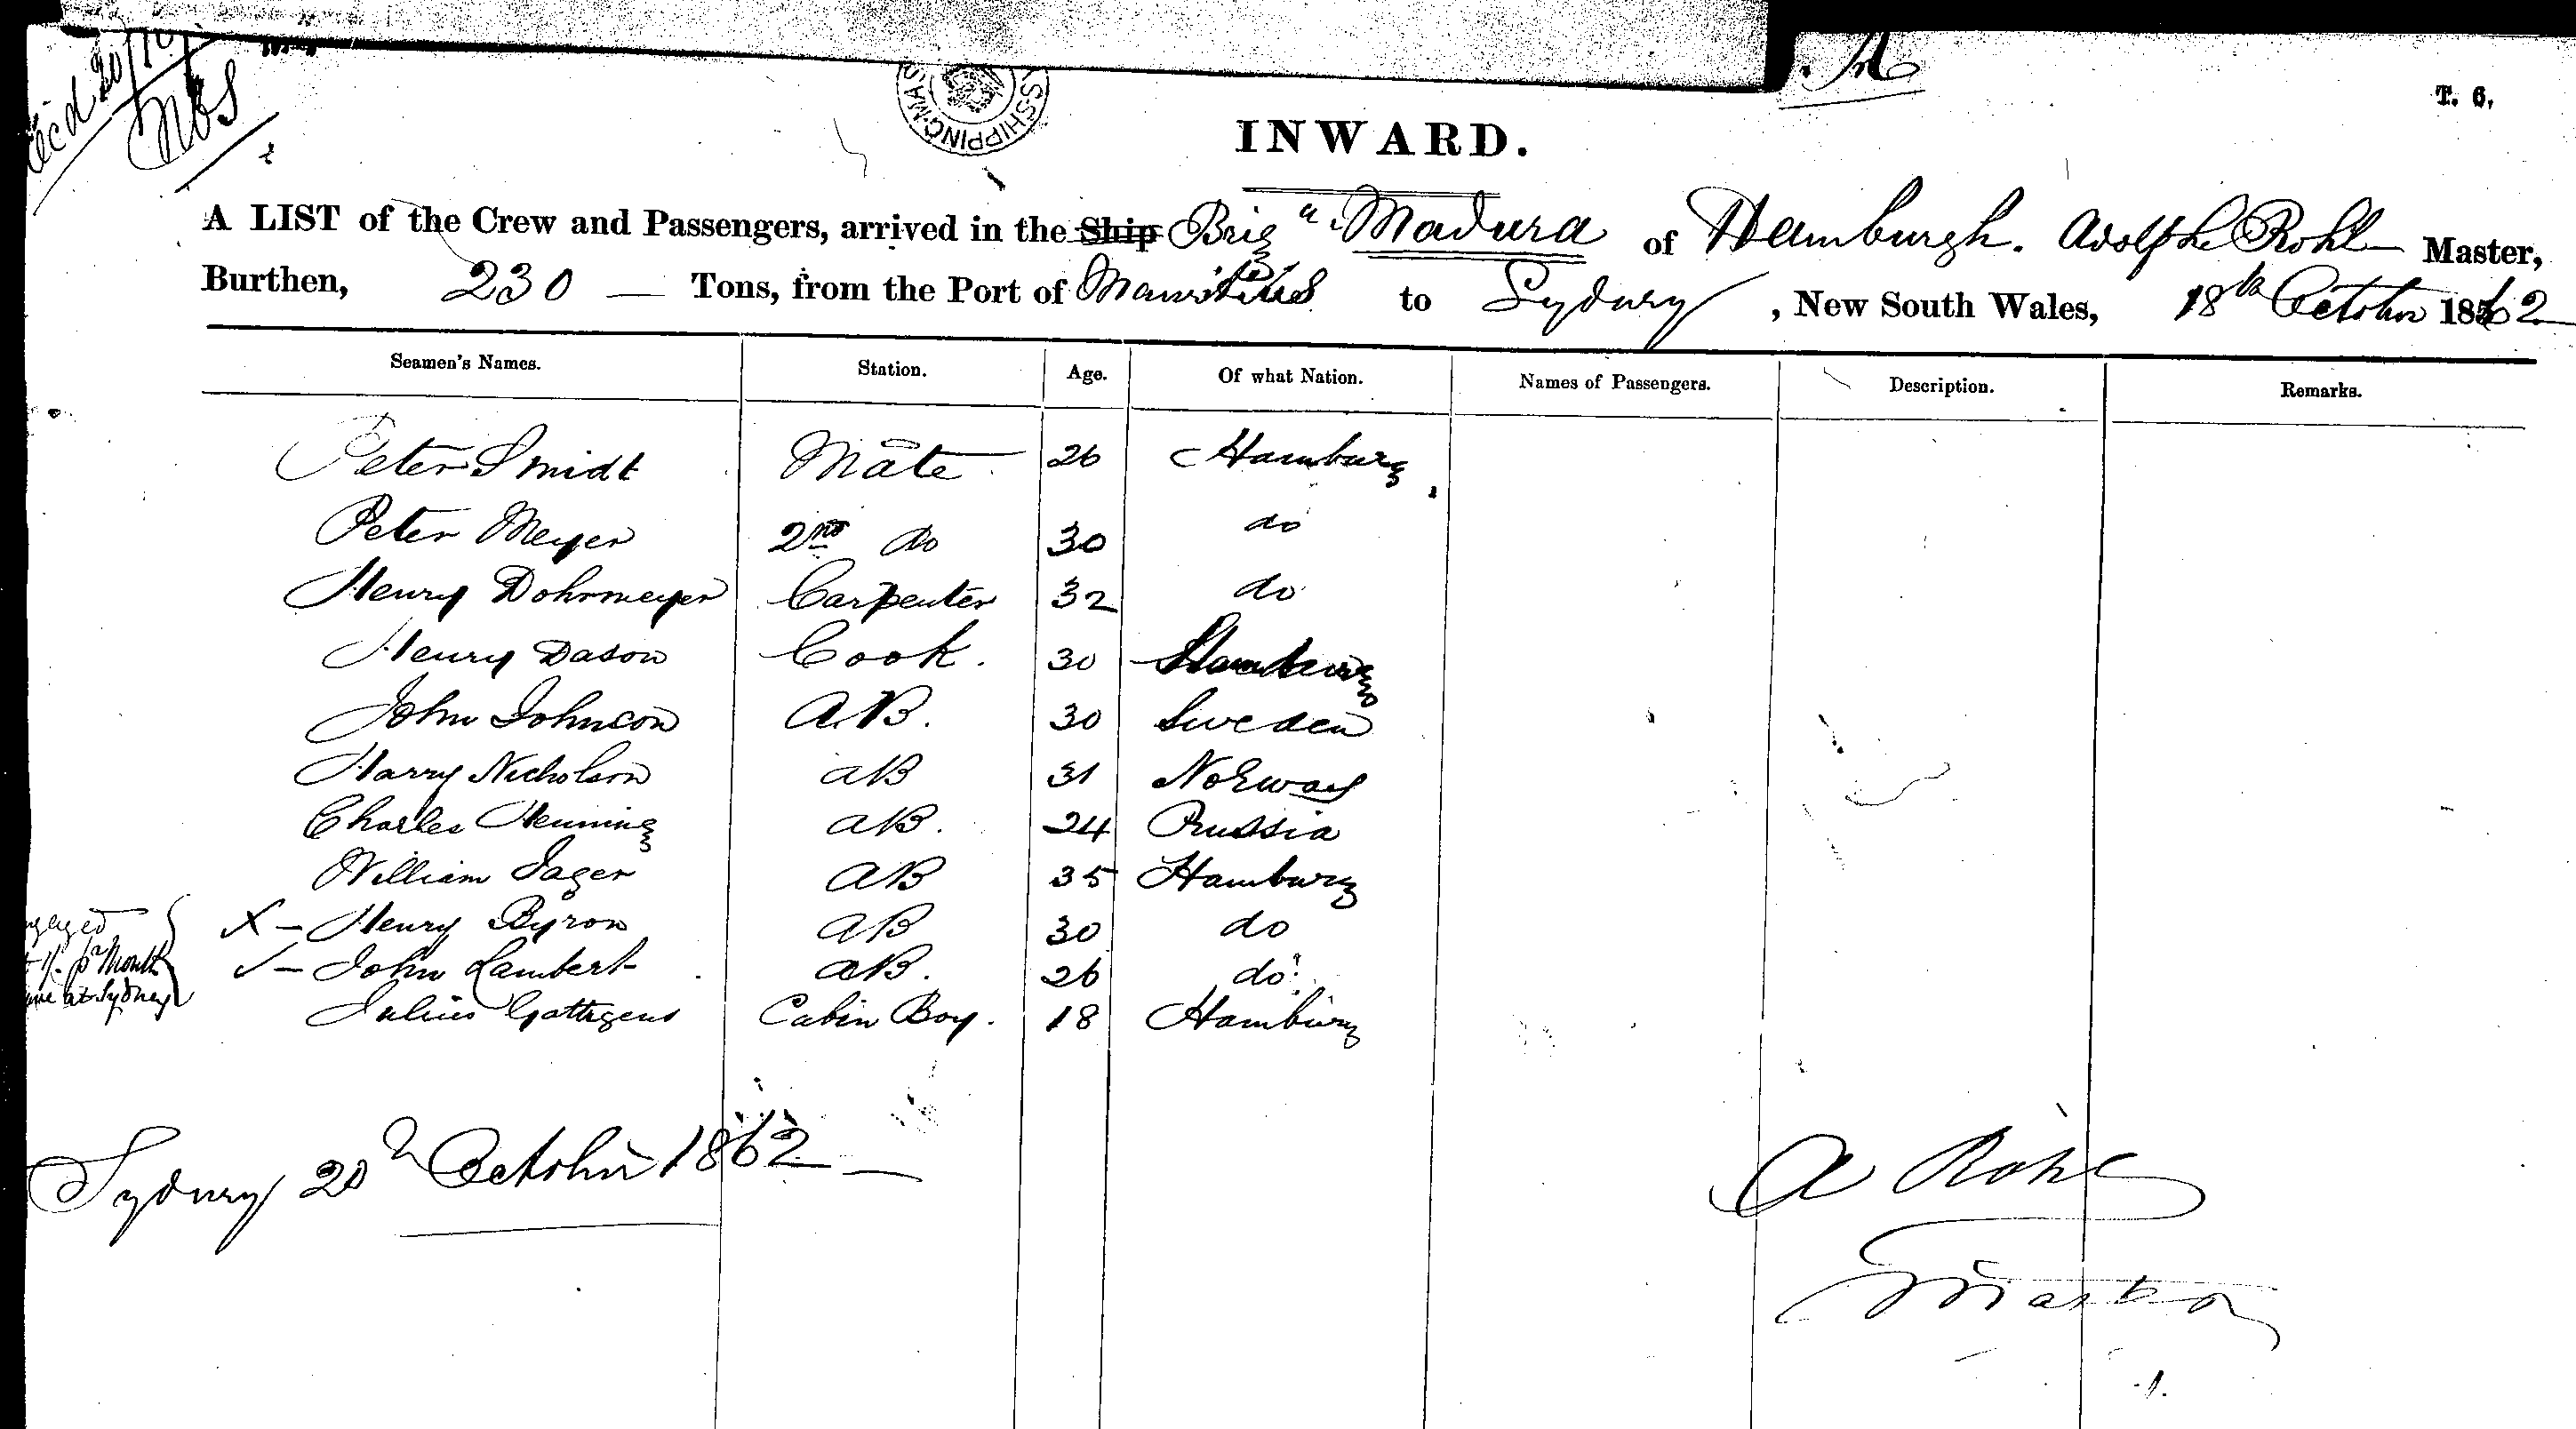 T. 6.
SHIPPING MAS
INWARD.
A LIST of the Crew and Passengers, arrived in the Ship Brig "Madura of Hamburgh. Adolph Rohl Master,
Burthen, 230 — Tons, from the Port of Mauritius to Sydney, New South Wales, 18th October 1862
Seamen's Names. Station. Age. Of what Nation. Names of Passengers. Description. Remarks.
Peter Smidt Mate 26 Hamburg
Peter Meyer 2nd do 30 do
Henry Dohrmeyer Carpenter 32 do
Henry Dason Cook. 30 Hamburg
John Johnson A.B. 30 Sweden
Harry Nicholson AB 31 Norway
Charles Henning AB. 24 Prussia
William Jager AB 35 Hamburg
X – Henry Byron AB 30 do
✓ – John Lambert AB. 26 do
Julius Gattgens Cabin Boy. 18 Hamburg
1/- pr Month
at Sydney
Sydney 20th October 1862 —
A Rohl
Master